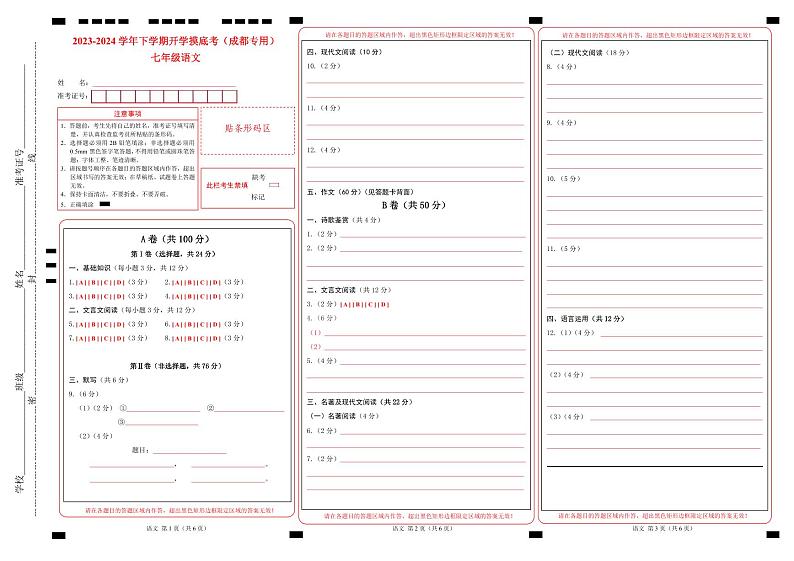 学校
班级
姓名
准考证号
密
封
线
2023-2024 学年下学期开学摸底考（成都专用）
七年级语文
姓　名：
准考证号：
注意事项
1．答题前，考生先将自己的姓名，准考证号填写清
楚，并认真检查监考员所粘贴的条形码。
2．选择题必须用 2B 铅笔填涂；非选择题必须用
0.5mm 黑色签字笔答题，不得用铅笔或圆珠笔答
题；字体工整、笔迹清晰。
3．请按题号顺序在各题目的答题区域内作答，超出
区域书写的答案无效；在草稿纸、试题卷上答题
无效。
4．保持卡面清洁，不要折叠、不要弄破。
5．正确填涂
贴条形码区
此栏考生禁填
缺考
标记
A 卷（共 100 分）
第Ⅰ卷（选择题，共 24 分）
一、基础知识（每小题 3 分，共 12 分）
1.[A][B][C][D]（3 分） 2.[A][B][C][D]（3 分）
3.[A][B][C][D]（3 分） 4.[A][B][C][D]（3 分）
二、文言文阅读（每小题 3 分，共 12 分）
5.[A][B][C][D]（3 分） 6.[A][B][C][D]（3 分）
7.[A][B][C][D]（3 分） 8.[A][B][C][D]（3 分）
第Ⅱ卷（非选择题，共 76 分）
三、默写（共 6 分）
9.（6 分）
（1）（2 分） ① ②
③
（2）（4 分）
题目：
， 。
， 。
请在各题目的答题区域内作答，超出黑色矩形边框限定区域的答案无效！
语文 第 1 页（共 6 页）
请在各题目的答题区域内作答，超出黑色矩形边框限定区域的答案无效！
四、现代文阅读（10 分）
10.（2 分）
11.（4 分）
12.（4 分）
五、作文（60 分）（见答题卡背面）
B 卷（共 50 分）
一、诗歌鉴赏（共 4 分）
1.（2 分）
2.（2 分）
二、文言文阅读（共 12 分）
3.（2 分）[A][B][C][D]
4.（6 分）
（1）
（2）
5.（4 分）
三、名著及现代文阅读（共 22 分）
（一）名著阅读（4 分）
6.（2 分）
7.（2 分）
请在各题目的答题区域内作答，超出黑色矩形边框限定区域的答案无效！
语文 第 2 页（共 6 页）
请在各题目的答题区域内作答，超出黑色矩形边框限定区域的答案无效！
（二）现代文阅读（18 分）
8.（4 分）
9.（4 分）
10.（5 分）
11.（5 分）
四、语言运用（共 12 分）
12.（1）（4 分）
（2）（4 分）
（3）（4 分）
请在各题目的答题区域内作答，超出黑色矩形边框限定区域的答案无效！
语文 第 3 页（共 6 页）